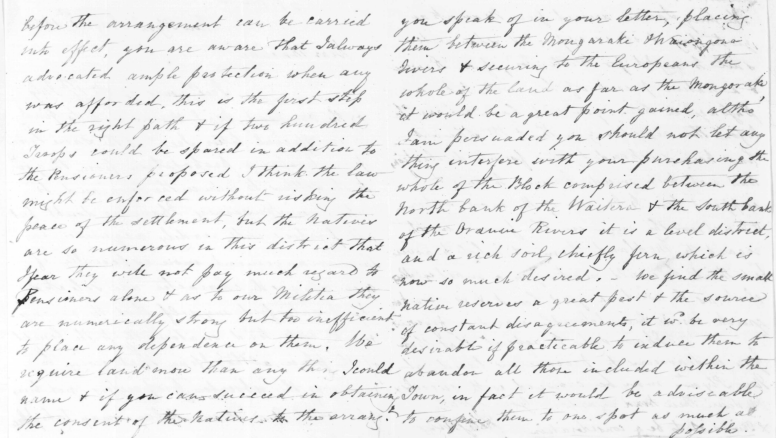 before the arrangement can be carried
into effect, you are aware that I always
advocated ample protection when any
was afforded, this is the first step
in the right path & if two hundred
Troops could be spared in addition to
the Pensioners proposed I think the law
might be enforced without risking the
peace of the settlement, but the Natives
are so numerous in this district that
I fear they will not pay much regard to
Pensioners alone & as to our Militia they
are numerically strong but too inefficient
to place any dependence on them. We
require land more than any thg. I could
name & if you can succeed in obtaining
the consent of the Natives to the arrangt.
you speak of in your letter, placing
them between the Mongaraki & Waiongona
Rivers & securing to the Europeans the
whole of the land as far as the Mongoraki
it would be a great point gained, altho'
I am persuaded you should not let any
thing interfere with your purchasing the
whole of the Block comprised between the
North bank of the Waitera & the South bank
of the Oranui Rivers it is a level district,
and a rich soil, chiefly fern which is
now so much desired. - We find the small
Native reserves a great pest & the source
of constant disagreements, it wd. be very
desirable if practicable to induce them to
abandon all those included within the
Town, in fact it would be adviseable
to confine them to one spot as much as
possible.